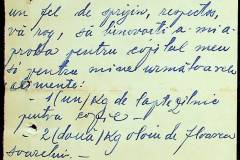 un fel de sprijin, respectos,
vă rog, să binevoiți a-mi a-
proba pentru copilul meu
și pentru mine următoarele
alimente:
- 1 (un) kg de lapte zilnic
pentru copil -
- 2 (două) kg oloiu de floarea
soarelui. -